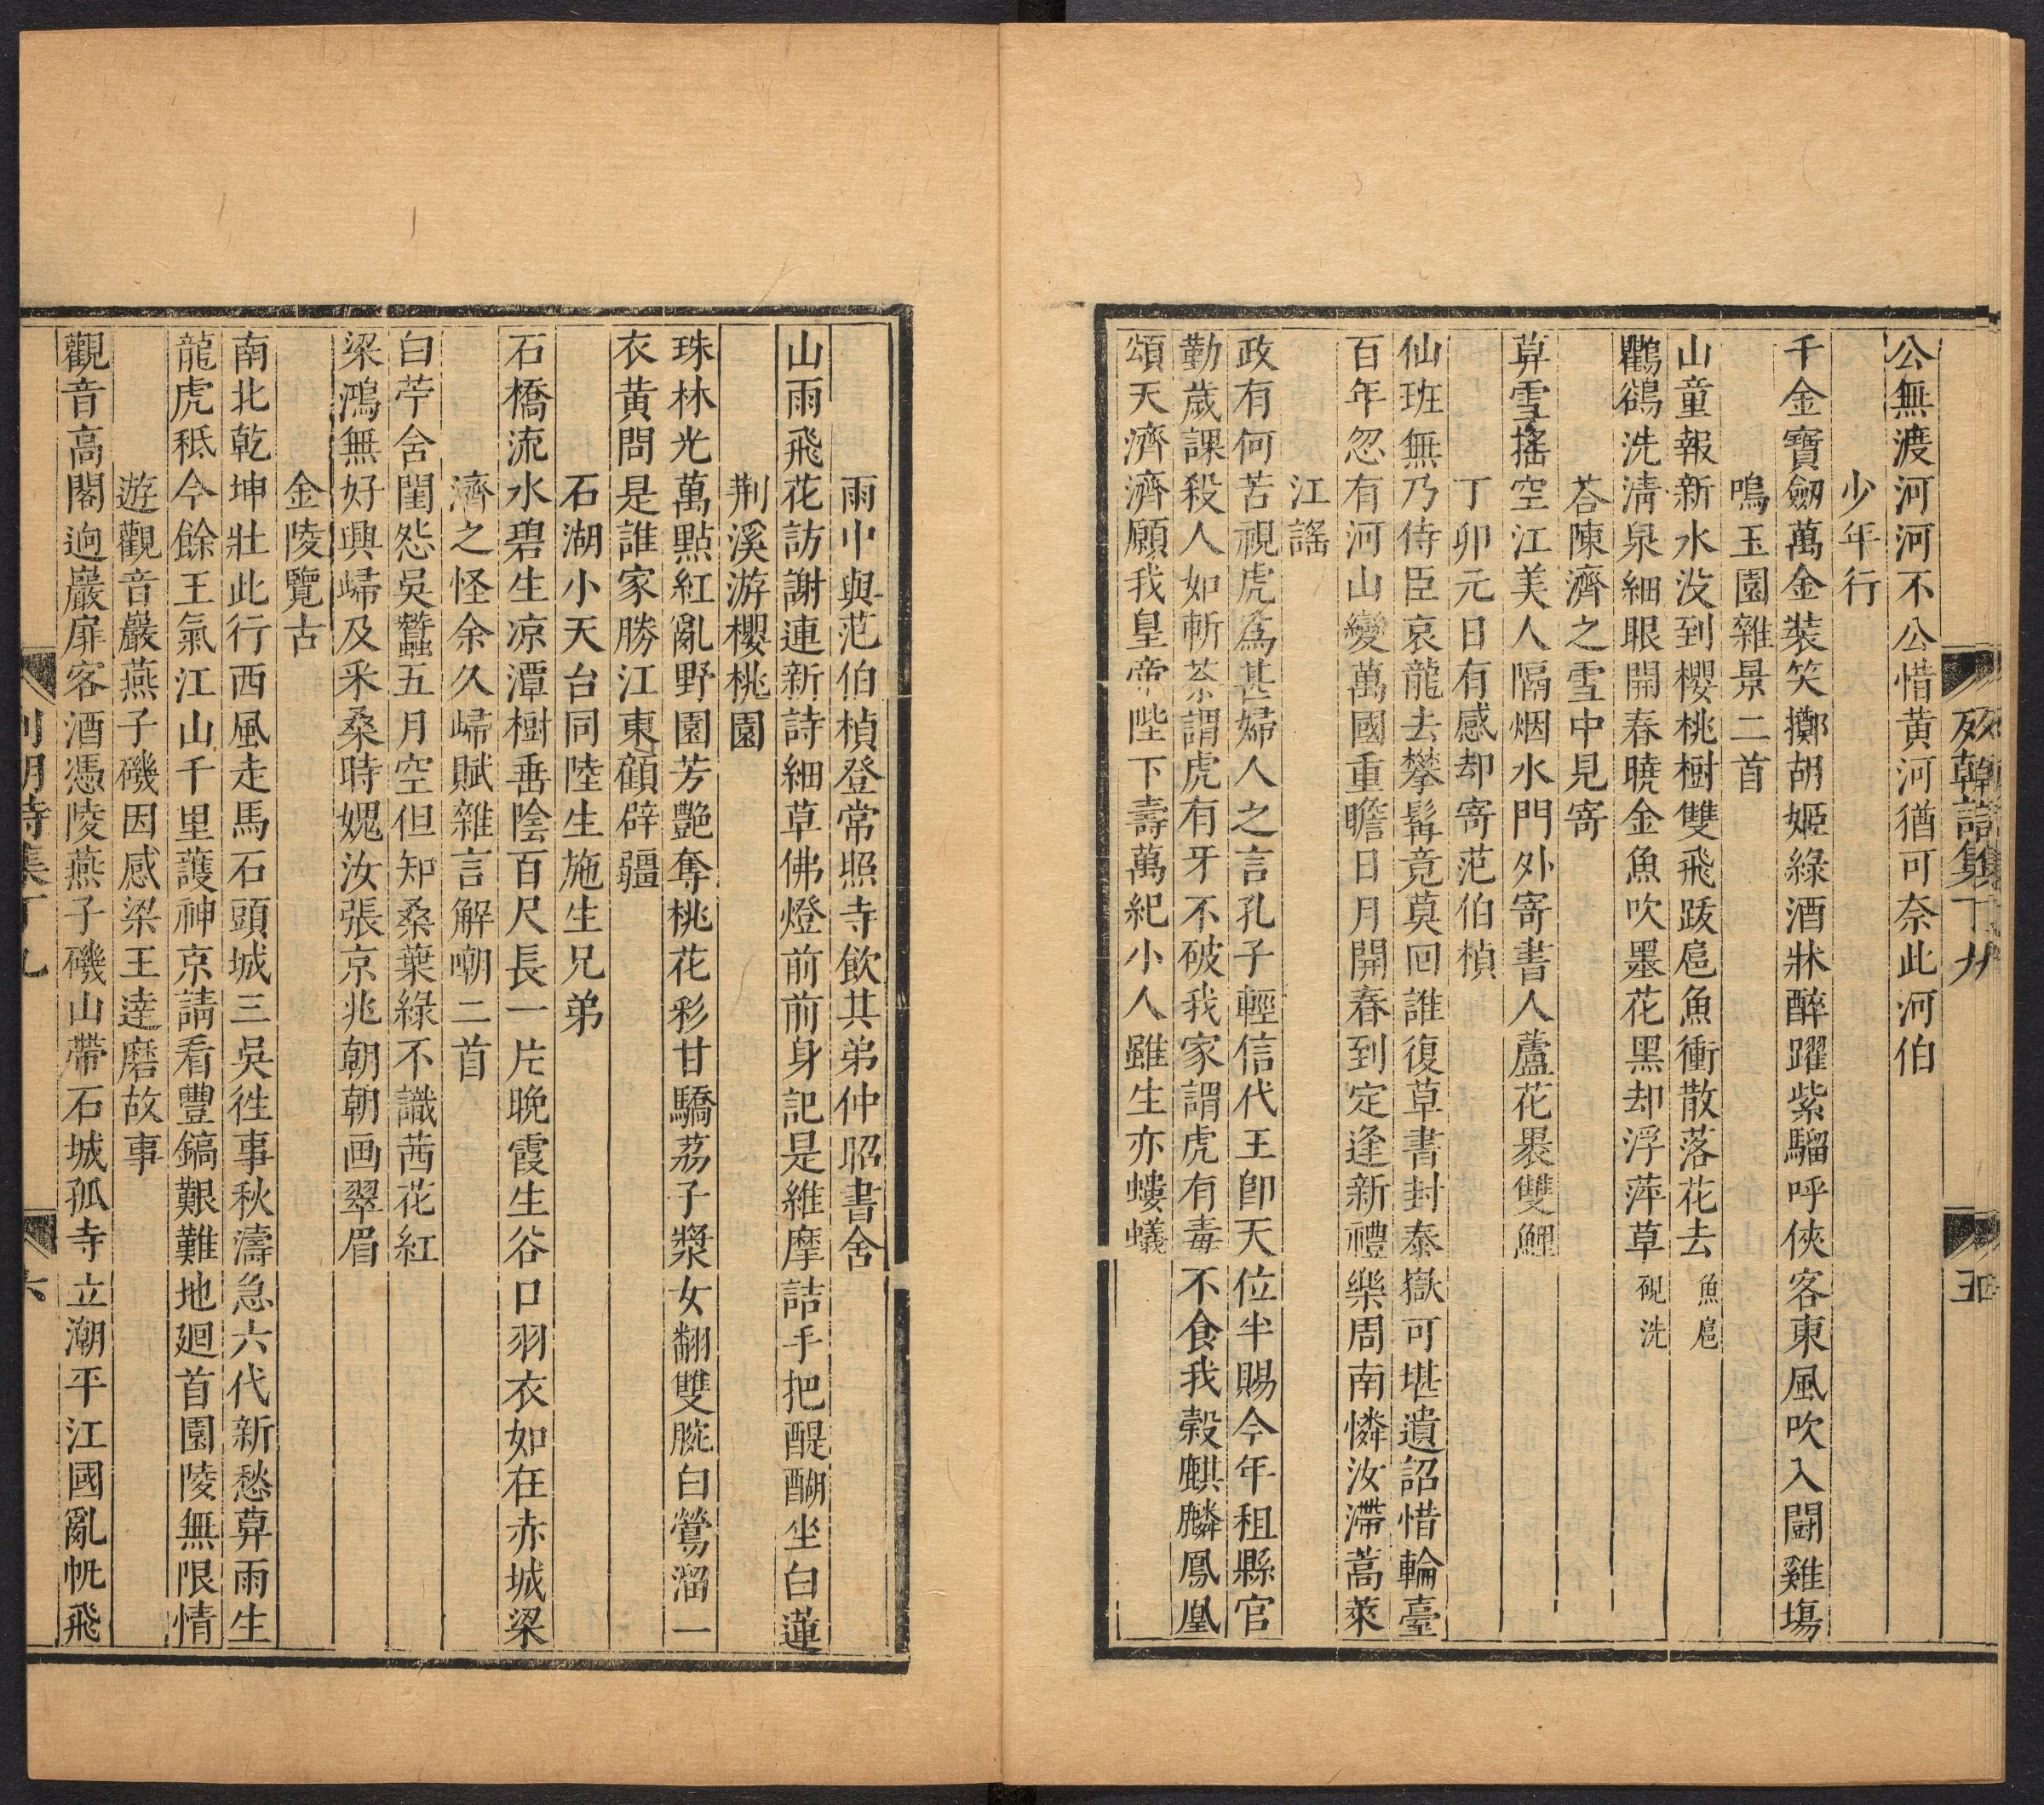 列朝詩集丁九
五
公無渡河河不公惜黄河猶可奈此河伯
少年行
千金寶劒萬金裝笑擲胡姬綠酒牀醉躍紫騮呼俠客東風吹入鬪雞塲
鳴玉園雜景二首
山童報新水没到櫻桃樹雙飛跋扈魚衝散落花去魚扈
鸜鵒洗淸泉細眼開春曉金魚吹墨花黑却浮萍草硯洗
荅陳濟之雪中見寄
算雪搖空江美人隔烟水門外寄書人蘆花裹雙鯉
丁卯元日有感却寄范伯楨
仙班無乃侍臣哀龍去攀髯竟莫回誰復草書封泰嶽可堪遺詔惜輪臺
百年忽有河山變萬國重瞻日月開春到定逢新禮樂周南憐汝滯蒿萊
江謠
政有何苦視虎爲甚婦人之言孔子輕信代王卽天位半賜今年租縣官
勤歲課殺人如斬荼謂虎有牙不破我家謂虎有毒不食我糓麒麟鳳凰
頌天濟濟願我皇帝陛下壽萬紀小人雖生亦螻蟻
雨中與范伯楨登常照寺飮其弟仲昭書舍
山雨飛花訪謝連新詩細草佛燈前前身記是維摩詰手把醍醐坐白蓮
荆溪游櫻桃園
珠林光萬點紅亂野園芳艷奪桃花彩甘驕荔子漿女翻雙腕白鶯溜一
衣黄問是誰家勝江東顧辟疆
石湖小天台同陸生施生兄弟
石橋流水碧生凉潭樹垂陰百尺長一片晚霞生谷口羽衣如在赤城梁
濟之怪余久歸賦雜言解嘲二首
白苧含閨怨吳蠶五月空但知桑葉綠不識茜花紅
梁鴻無好興歸及采桑時媿汝張京兆朝朝画翠眉
金陵覽古
南北乾坤壯此行西風走馬石頭城三吳徃事秋濤急六代新愁算雨生
龍虎秪今餘王氣江山千里護神京請看豐鎬艱難地廻首園陵無限情
遊觀音巖燕子磯因感梁王達磨故事
觀音高閣逈巖扉客酒憑陵燕子磯山帶石城孤寺立潮平江國亂帆飛
列朝詩集丁九
六